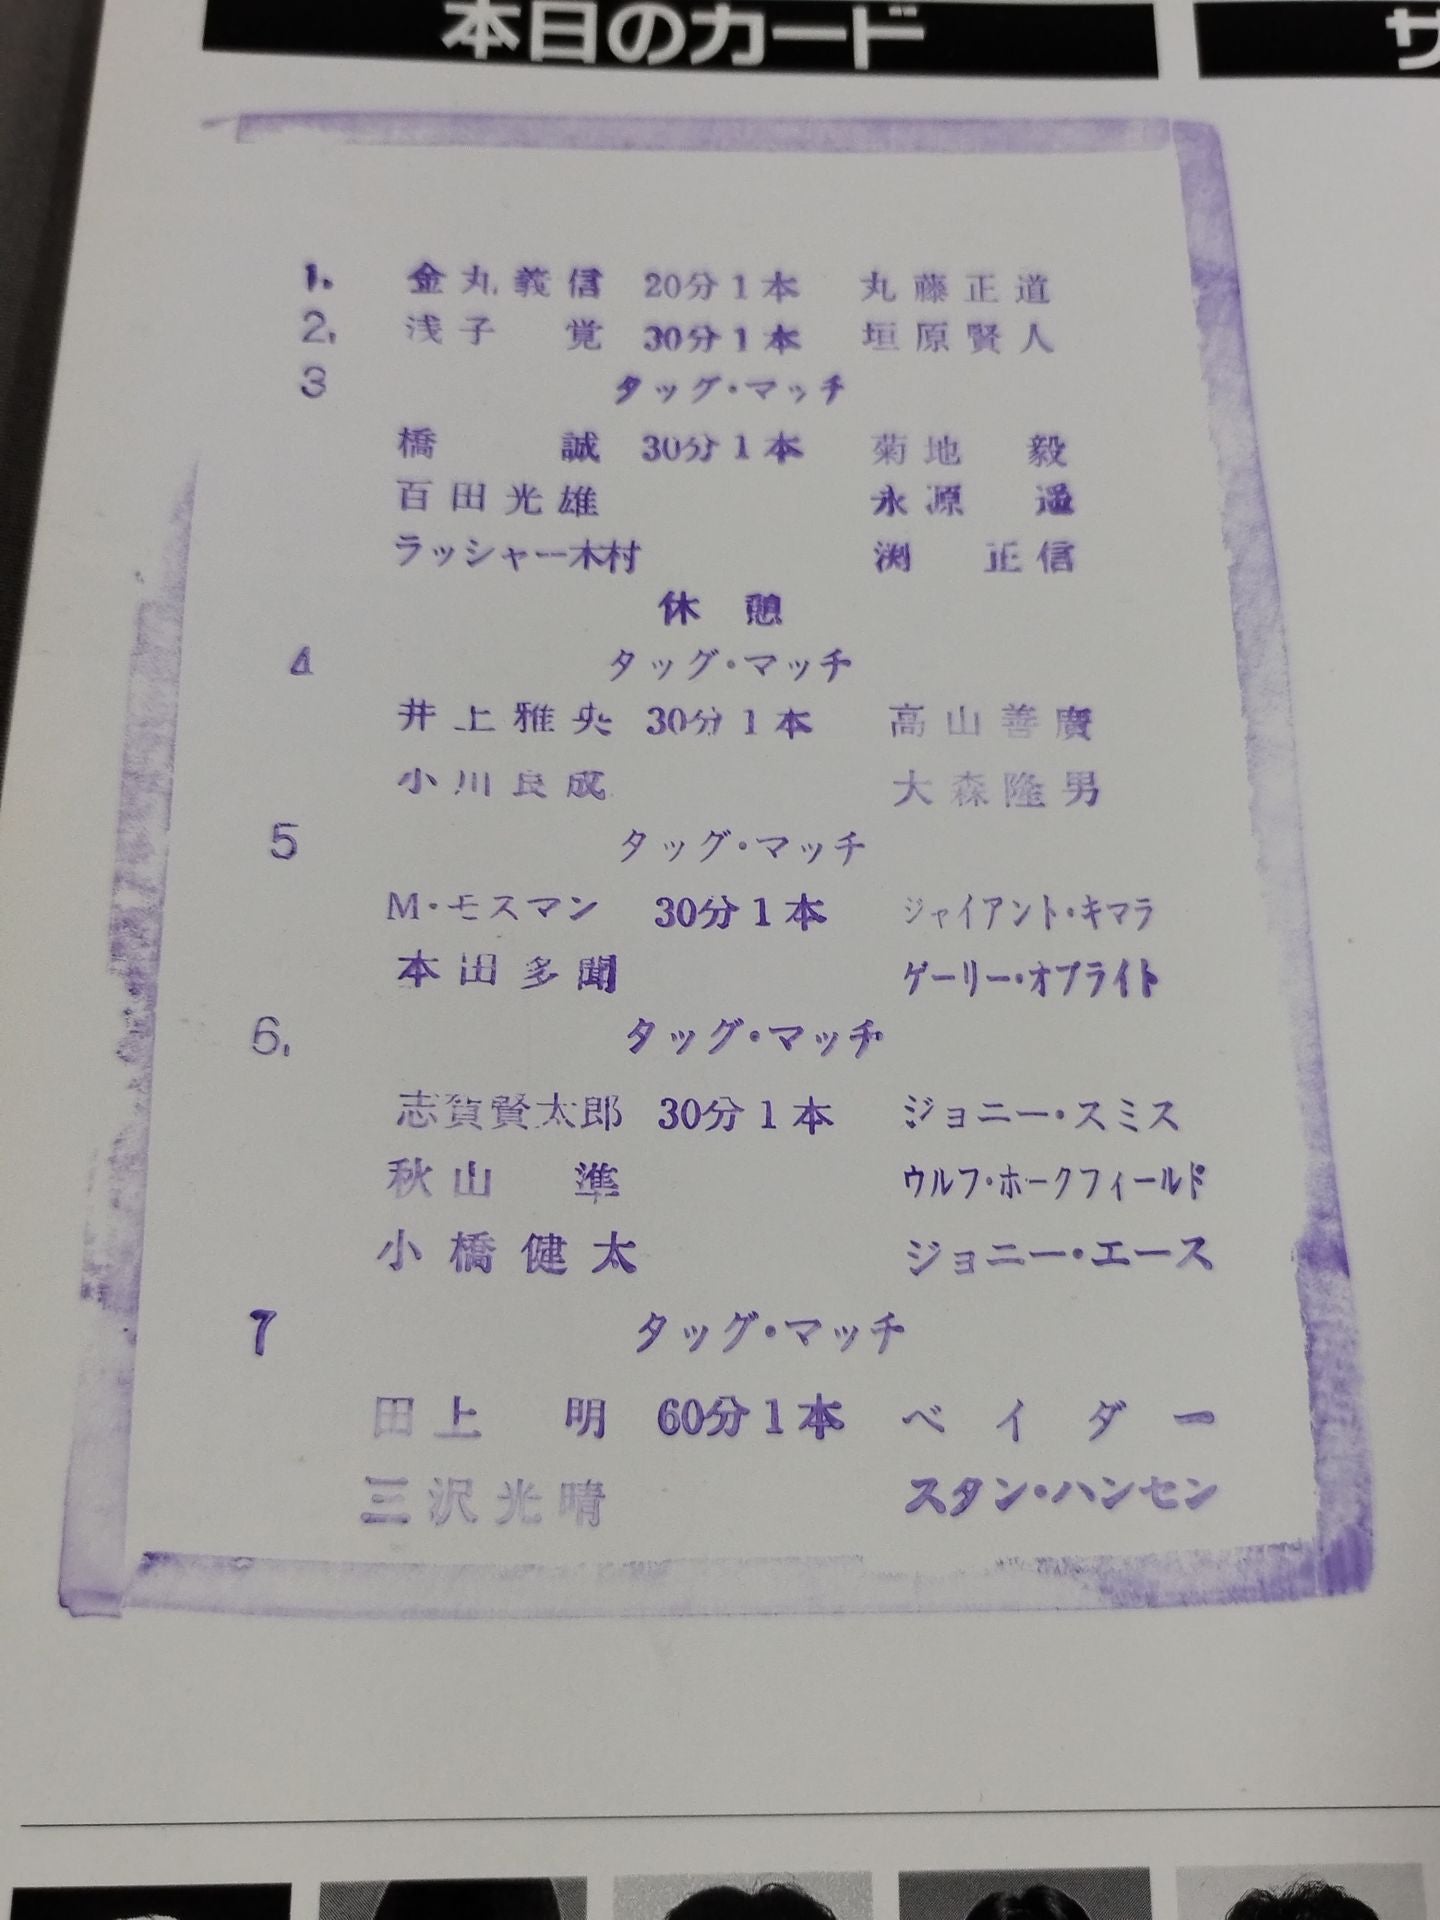 本日のカード
サ
1. 金丸義信 20分1本 丸藤正道
2. 浅子 覚 30分1本 垣原賢人
3 タッグ・マッチ
橋 誠 30分1本 菊地 毅
百田光雄 永源 遥
ラッシャー木村 渕 正信
休憩
4 タッグ・マッチ
井上雅央 30分1本 高山善廣
小川良成 大森隆男
5 タッグ・マッチ
M・モスマン 30分1本 ジャイアント・キマラ
本田多聞 ゲーリー・オブライト
6. タッグ・マッチ
志賀賢太郎 30分1本 ジョニー・スミス
秋山 準 ウルフ・ホークフィールド
小橋健太 ジョニー・エース
7 タッグ・マッチ
田上 明 60分1本 ベイダー
三沢光晴 スタン・ハンセン